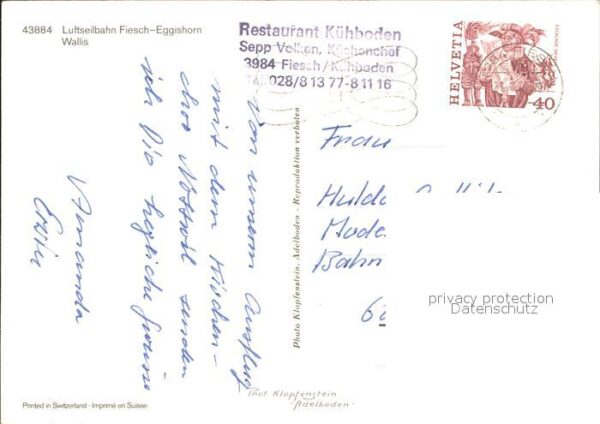 43884 Luftseilbahn Fiesch–Eggishorn
Wallis
Restaurant Kühboden
Sepp Volken, Küchenchef
3984 Fiesch/Kühboden
Tel. 028/8 13 77-8 11 16
HELVETIA
40
Von unserm Ausflug
mit dem Kirchen-
chor Nottwil senden
ich Dir herzliche Grüsse
Amanda
Erwin
Photo Klopfenstein, Adelboden - Reproduktion verboten
Frau
Hulda
Mode
Bahn
62
privacy protection
Datenschutz
Phot Klopfenstein
-Adelboden-
Printed in Switzerland - Imprimé en Suisse